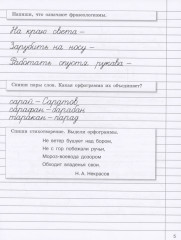 Напиши, что означают фразеологизмы.
На краю света –
Зарубить на носу –
Работать спустя рукава –
Спиши пары слов. Какая орфограмма их объединяет?
сарай – Саратов
сарафан – барабан
таракан – парад
Спиши стихотворение. Выдели орфограммы.
Не ветер бушует над бором,
Не с гор побежали ручьи,
Мороз-воевода дозором
Обходит владенья свои.
Н. А. Некрасов